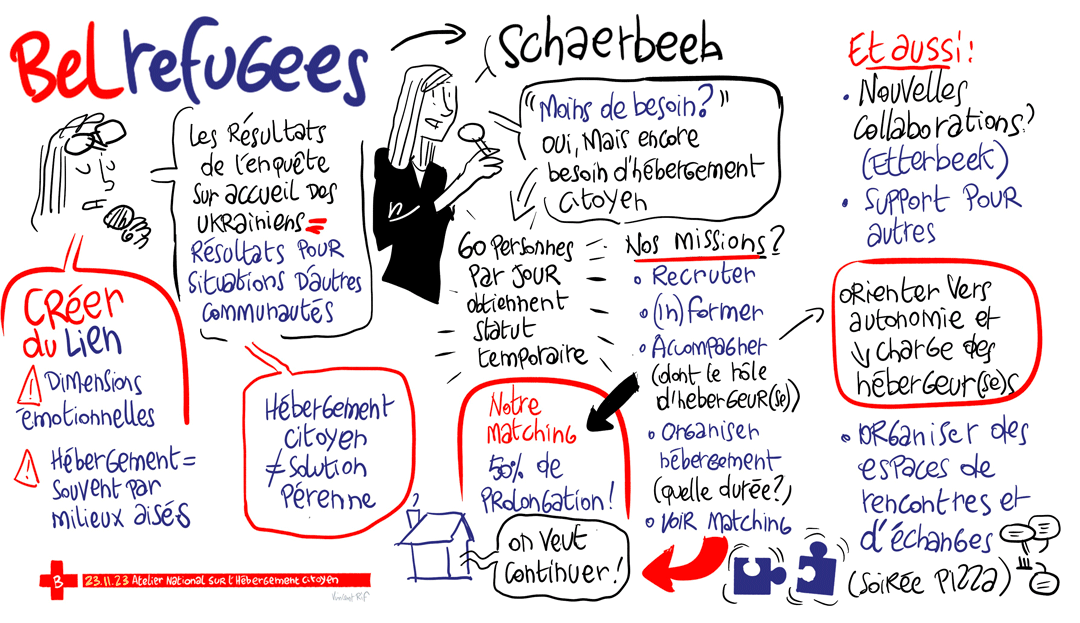 Belrefugees
Les Résultats
de l'enquête
sur accueil des
ukrainiens =
Résultats pour
situations d'autres
communautés
Créer
du lien
! Dimensions
émotionnelles
! Hébergement =
souvent par
milieux aisés
Hébergement
citoyen
≠ solution
pérenne
B
23.11.23 Atelier National sur l'Hébergement citoyen
Schaerbeek
"Moins de besoin?"
oui, mais encore
besoin d'hébergement
citoyen
60 personnes
par jour
obtiennent
statut
temporaire
Notre
matching
50% de
prolongation!
on veut
continuer!
Nos missions?
• Recruter
• (in)former
• Accompagner
(dont le rôle
d'hebergeur(se))
• Organiser
hébergement
(quelle durée?)
• Voir matching
Et aussi:
• Nouvelles
collaborations?
(Etterbeek)
• Support pour
autres
orienter vers
autonomie et
↘ charge des
hébergeur(se)s
• organiser des
espaces de
rencontres et
d'échanges
(soirée pizza)